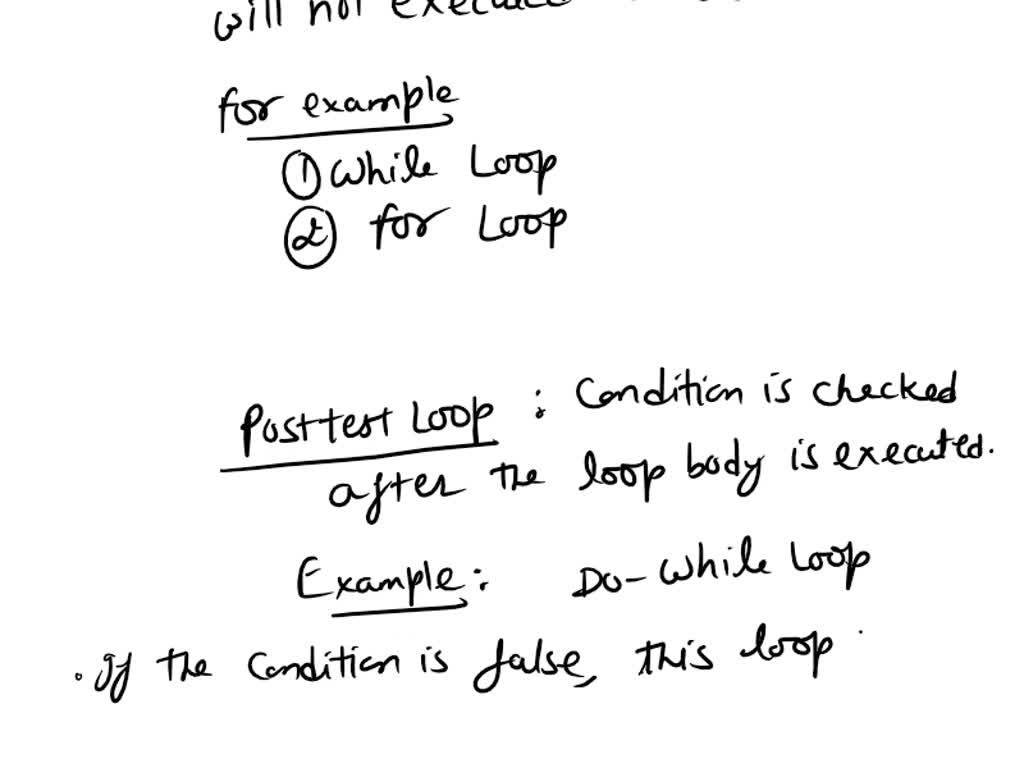 will not execute
for example
① While Loop
② for Loop
Posttest Loop : Condition is checked
after the loop body is executed.
Example: Do-While Loop
. If the Condition is false, this loop